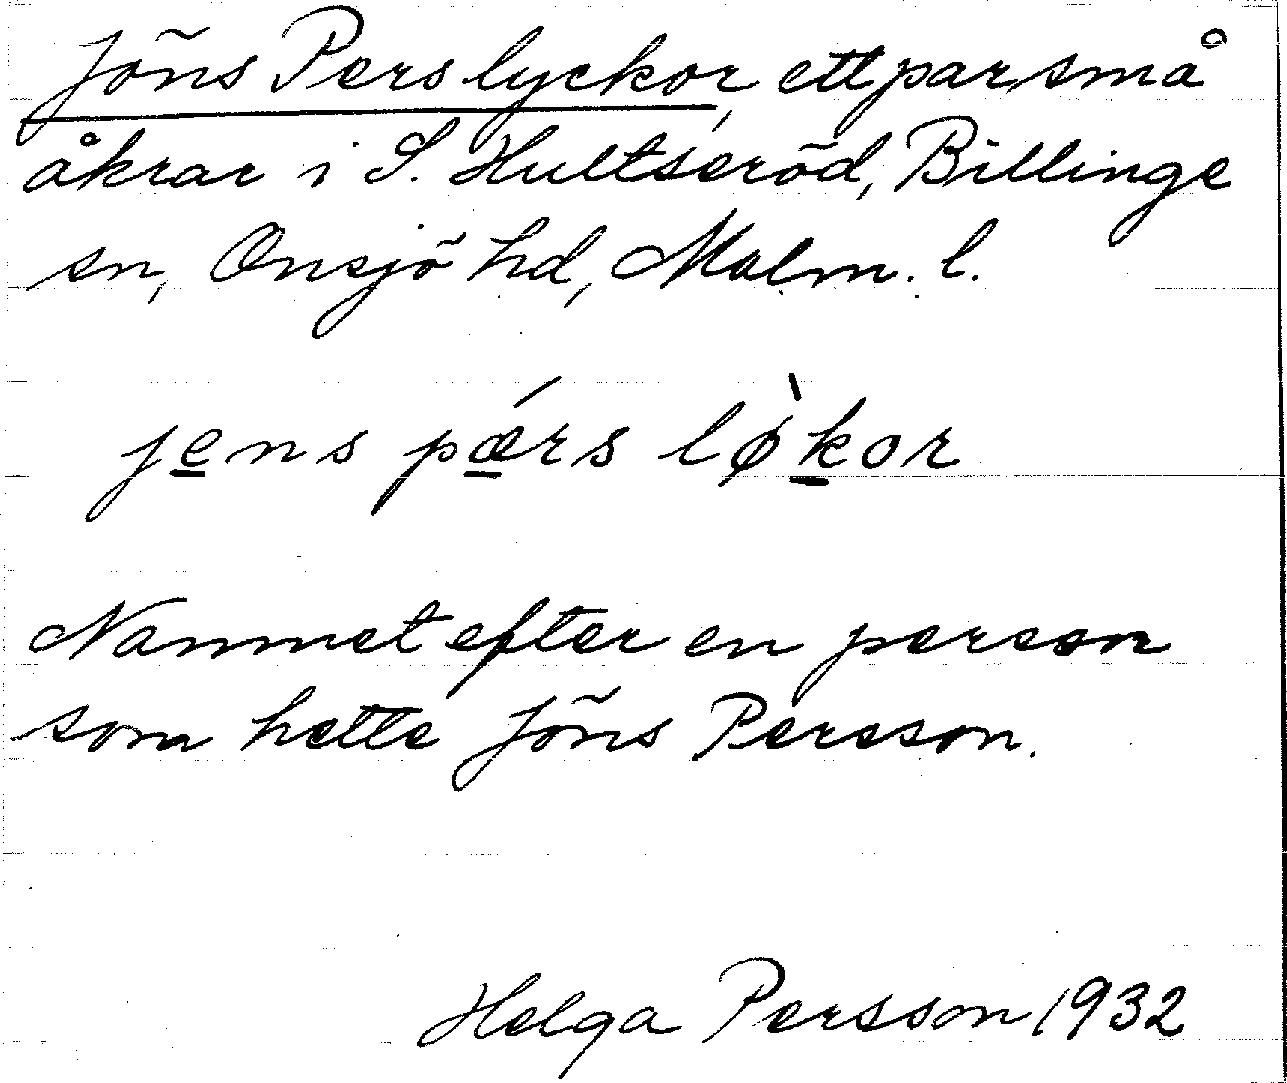 Jöns Pers lyckor, ett par små
åkrar i S. Hultseröd, Billinge
sn, Onsjö hd, Malm. l.
jens pǽrs lø̀kor
Namnet efter en person
som hette Jöns Persson.
Helga Persson 1932